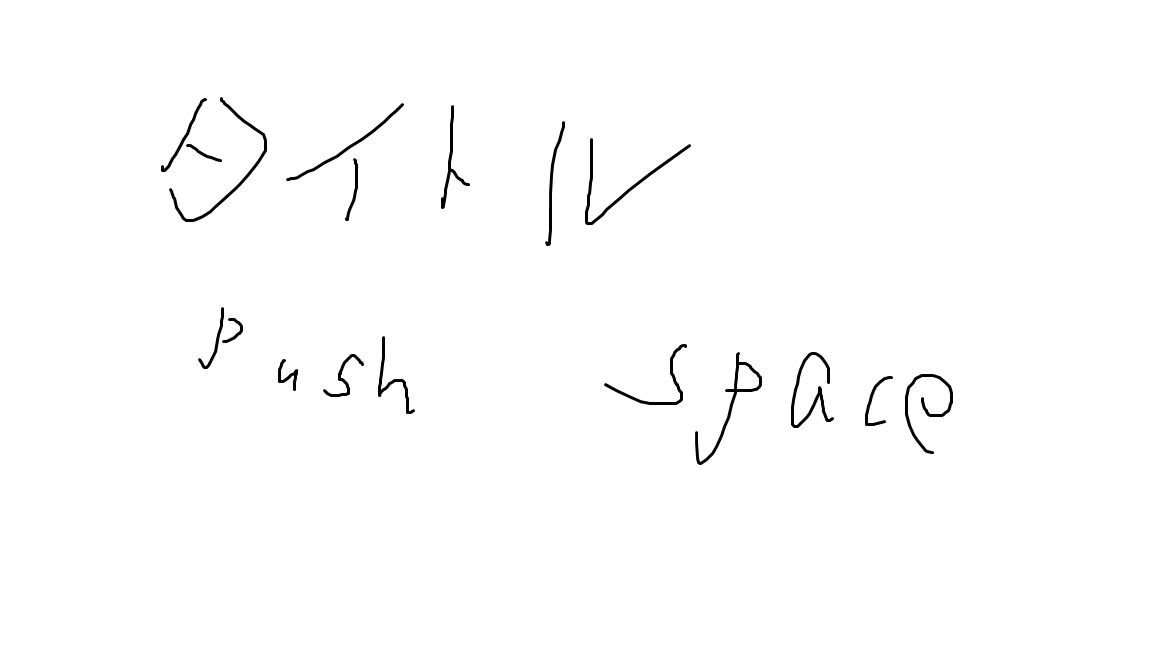 タイトル
Push space